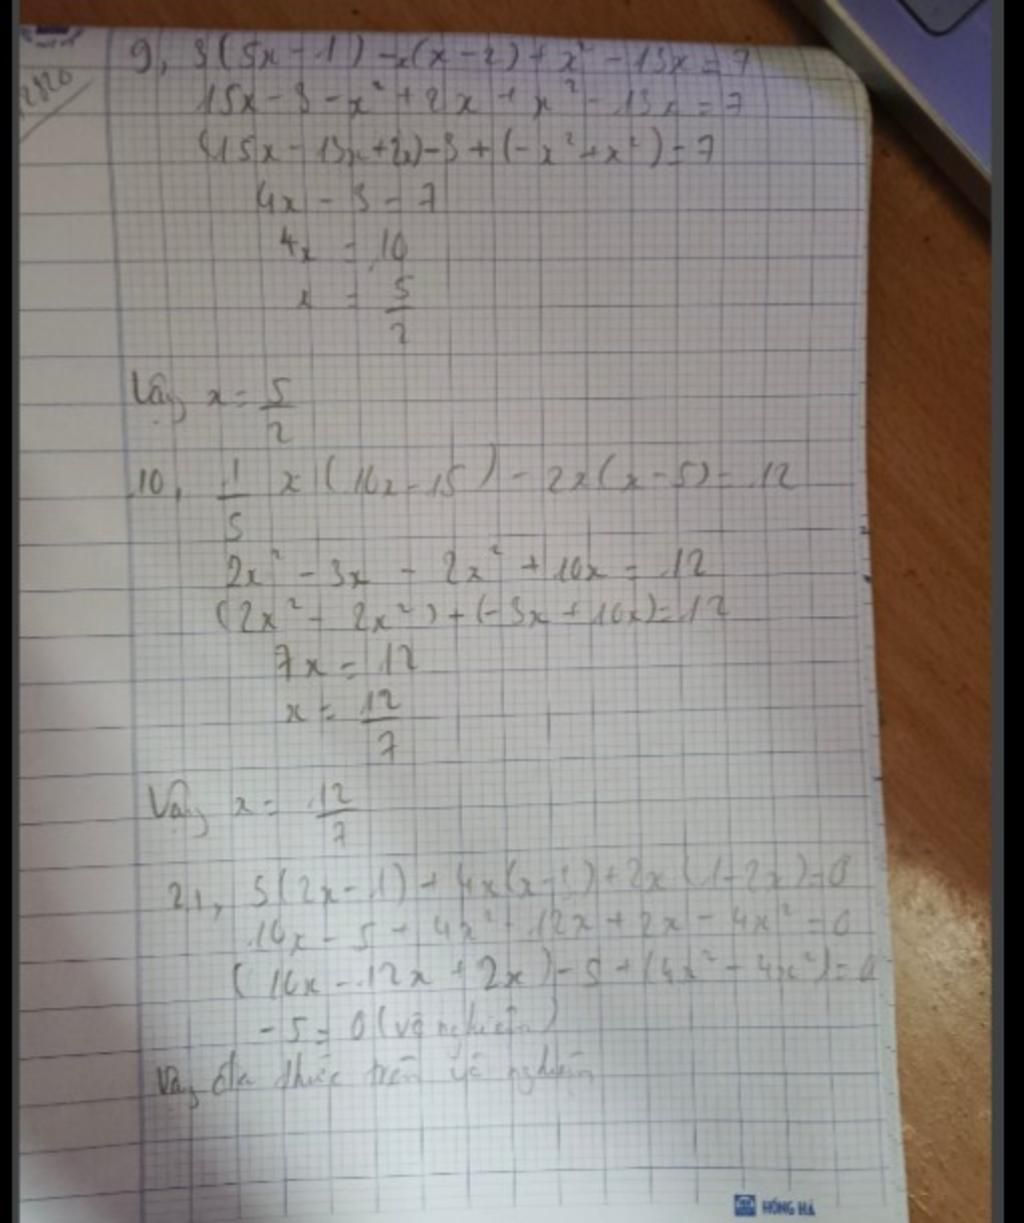 9, 3(5x - 1) - x(x - 2) + x² - 13x = 7
15x - 3 - x² + 2x + x² - 13x = 7
(15x - 13x + 2x) - 3 + (-x² + x²) = 7
4x - 3 = 7
4x = 10
x = 5/2
Vậy x = 5/2
10, 1/5 x (10x - 15) - 2x(x - 5) = 12
2x² - 3x - 2x² + 10x = 12
(2x² - 2x²) + (-3x + 10x) = 12
7x = 12
x = 12/7
Vậy x = 12/7
21, 5(2x - 1) + 4x(x - 3) + 2x(1 - 2x) = 0
10x - 5 + 4x² - 12x + 2x - 4x² = 0
(10x - 12x + 2x) - 5 + (4x² - 4x²) = 0
-5 = 0 (vô nghiệm)
Vậy đa thức trên vô nghiệm
HỒNG HÀ